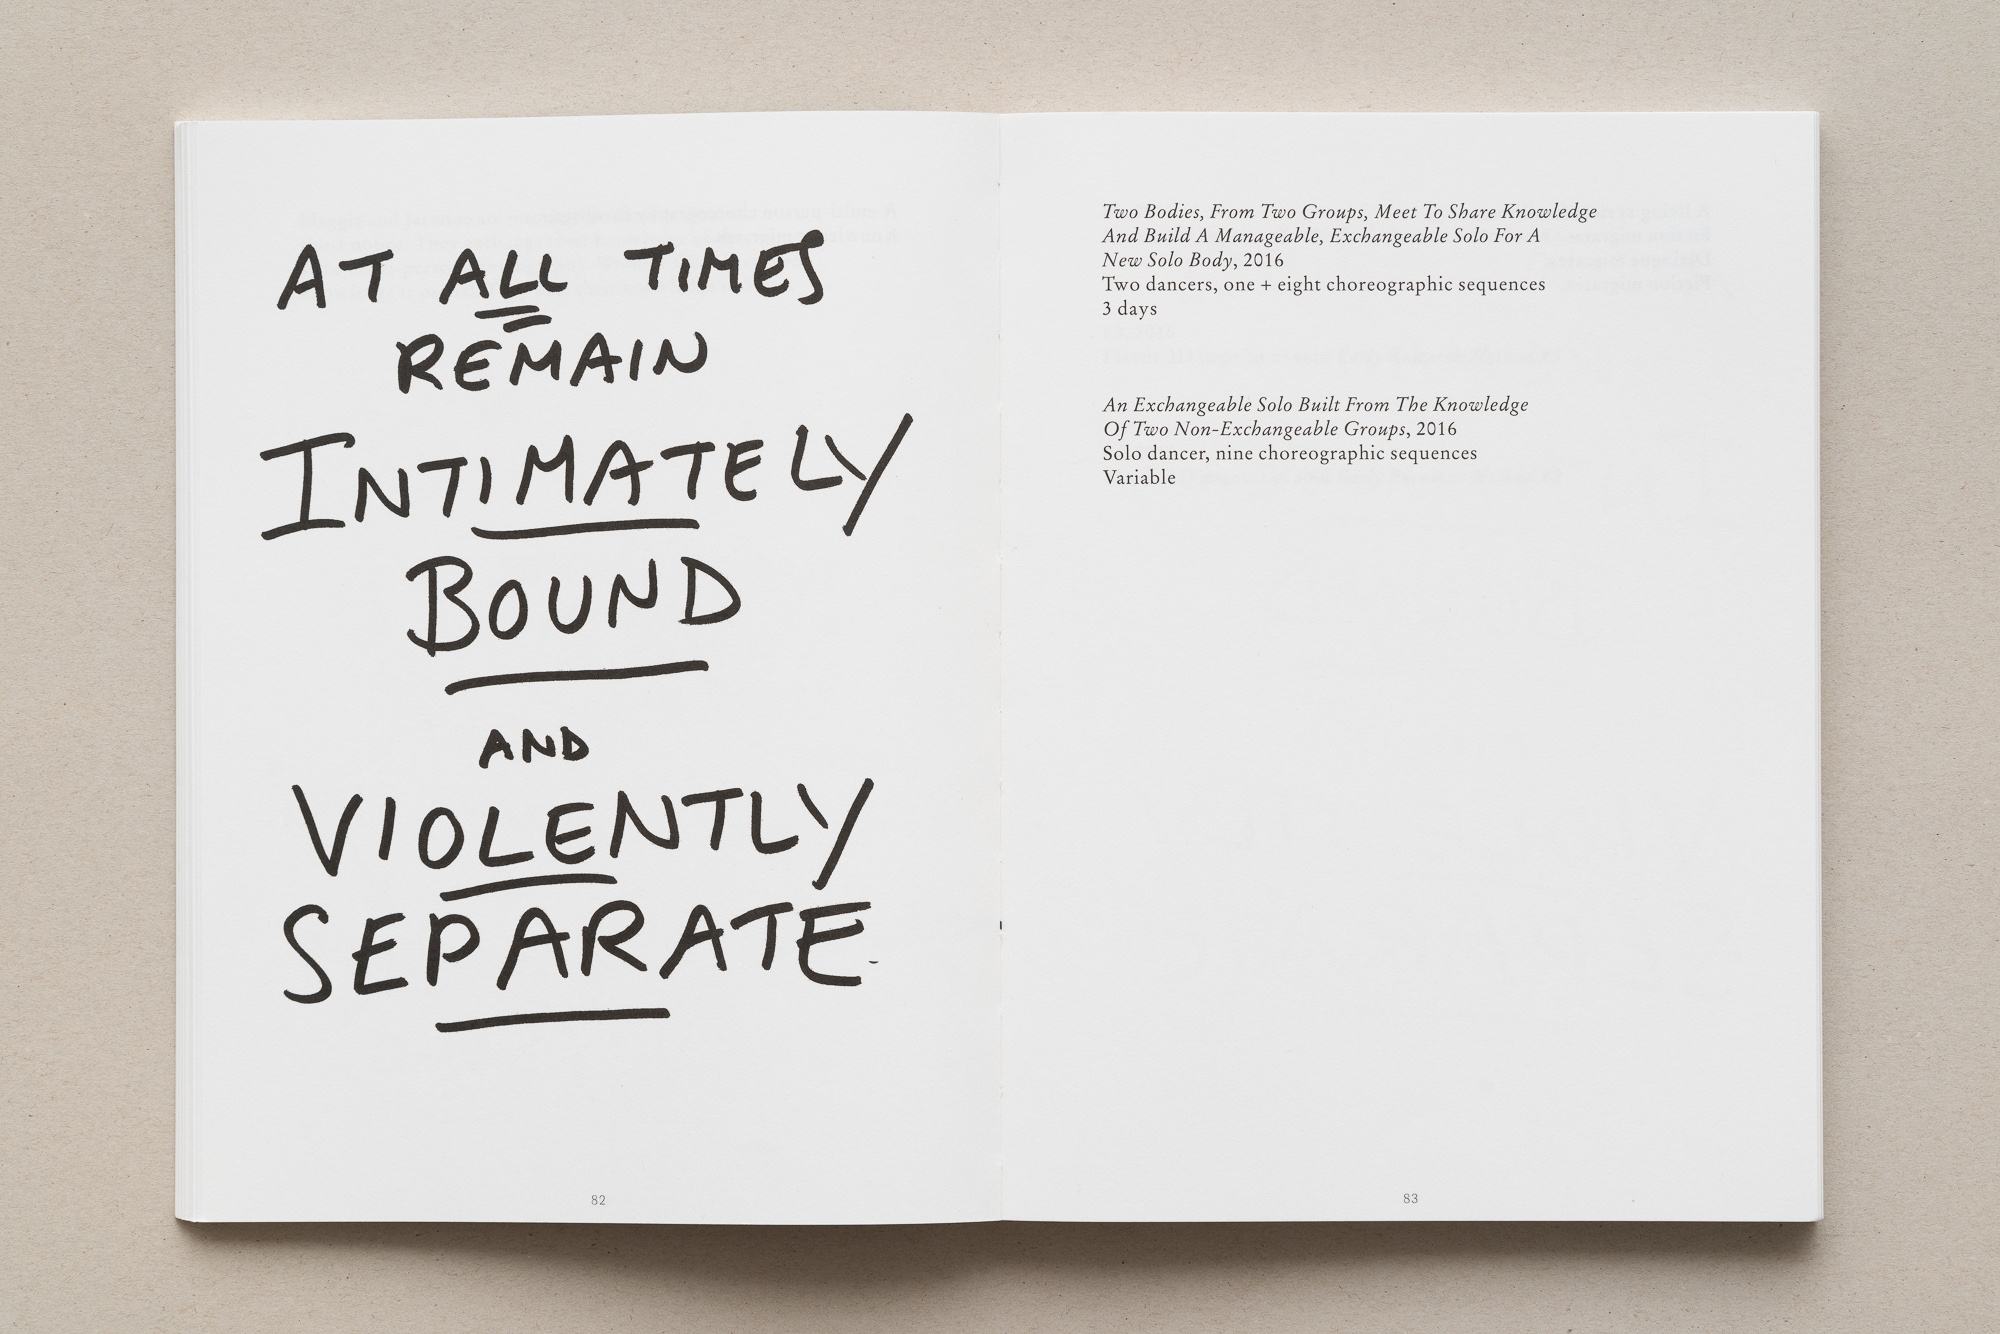 AT ALL TIMES
REMAIN
INTIMATELY
BOUND
AND
VIOLENTLY
SEPARATE.
82
Two Bodies, From Two Groups, Meet To Share Knowledge
And Build A Manageable, Exchangeable Solo For A
New Solo Body, 2016
Two dancers, one + eight choreographic sequences
3 days
An Exchangeable Solo Built From The Knowledge
Of Two Non-Exchangeable Groups, 2016
Solo dancer, nine choreographic sequences
Variable
83